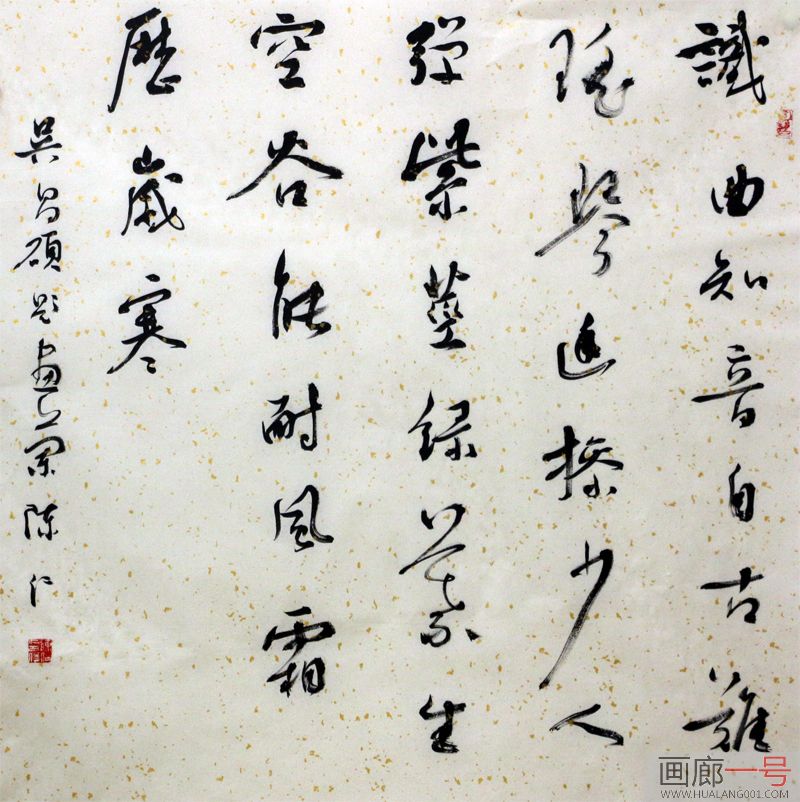 識曲知音自古難
瑤琴幽操少人
彈紫莖綠葉生
空谷能耐風霜
歷歲寒
吳昌碩題畫蘭陳仁
画廊一号
WWW.HUALANG001.COM